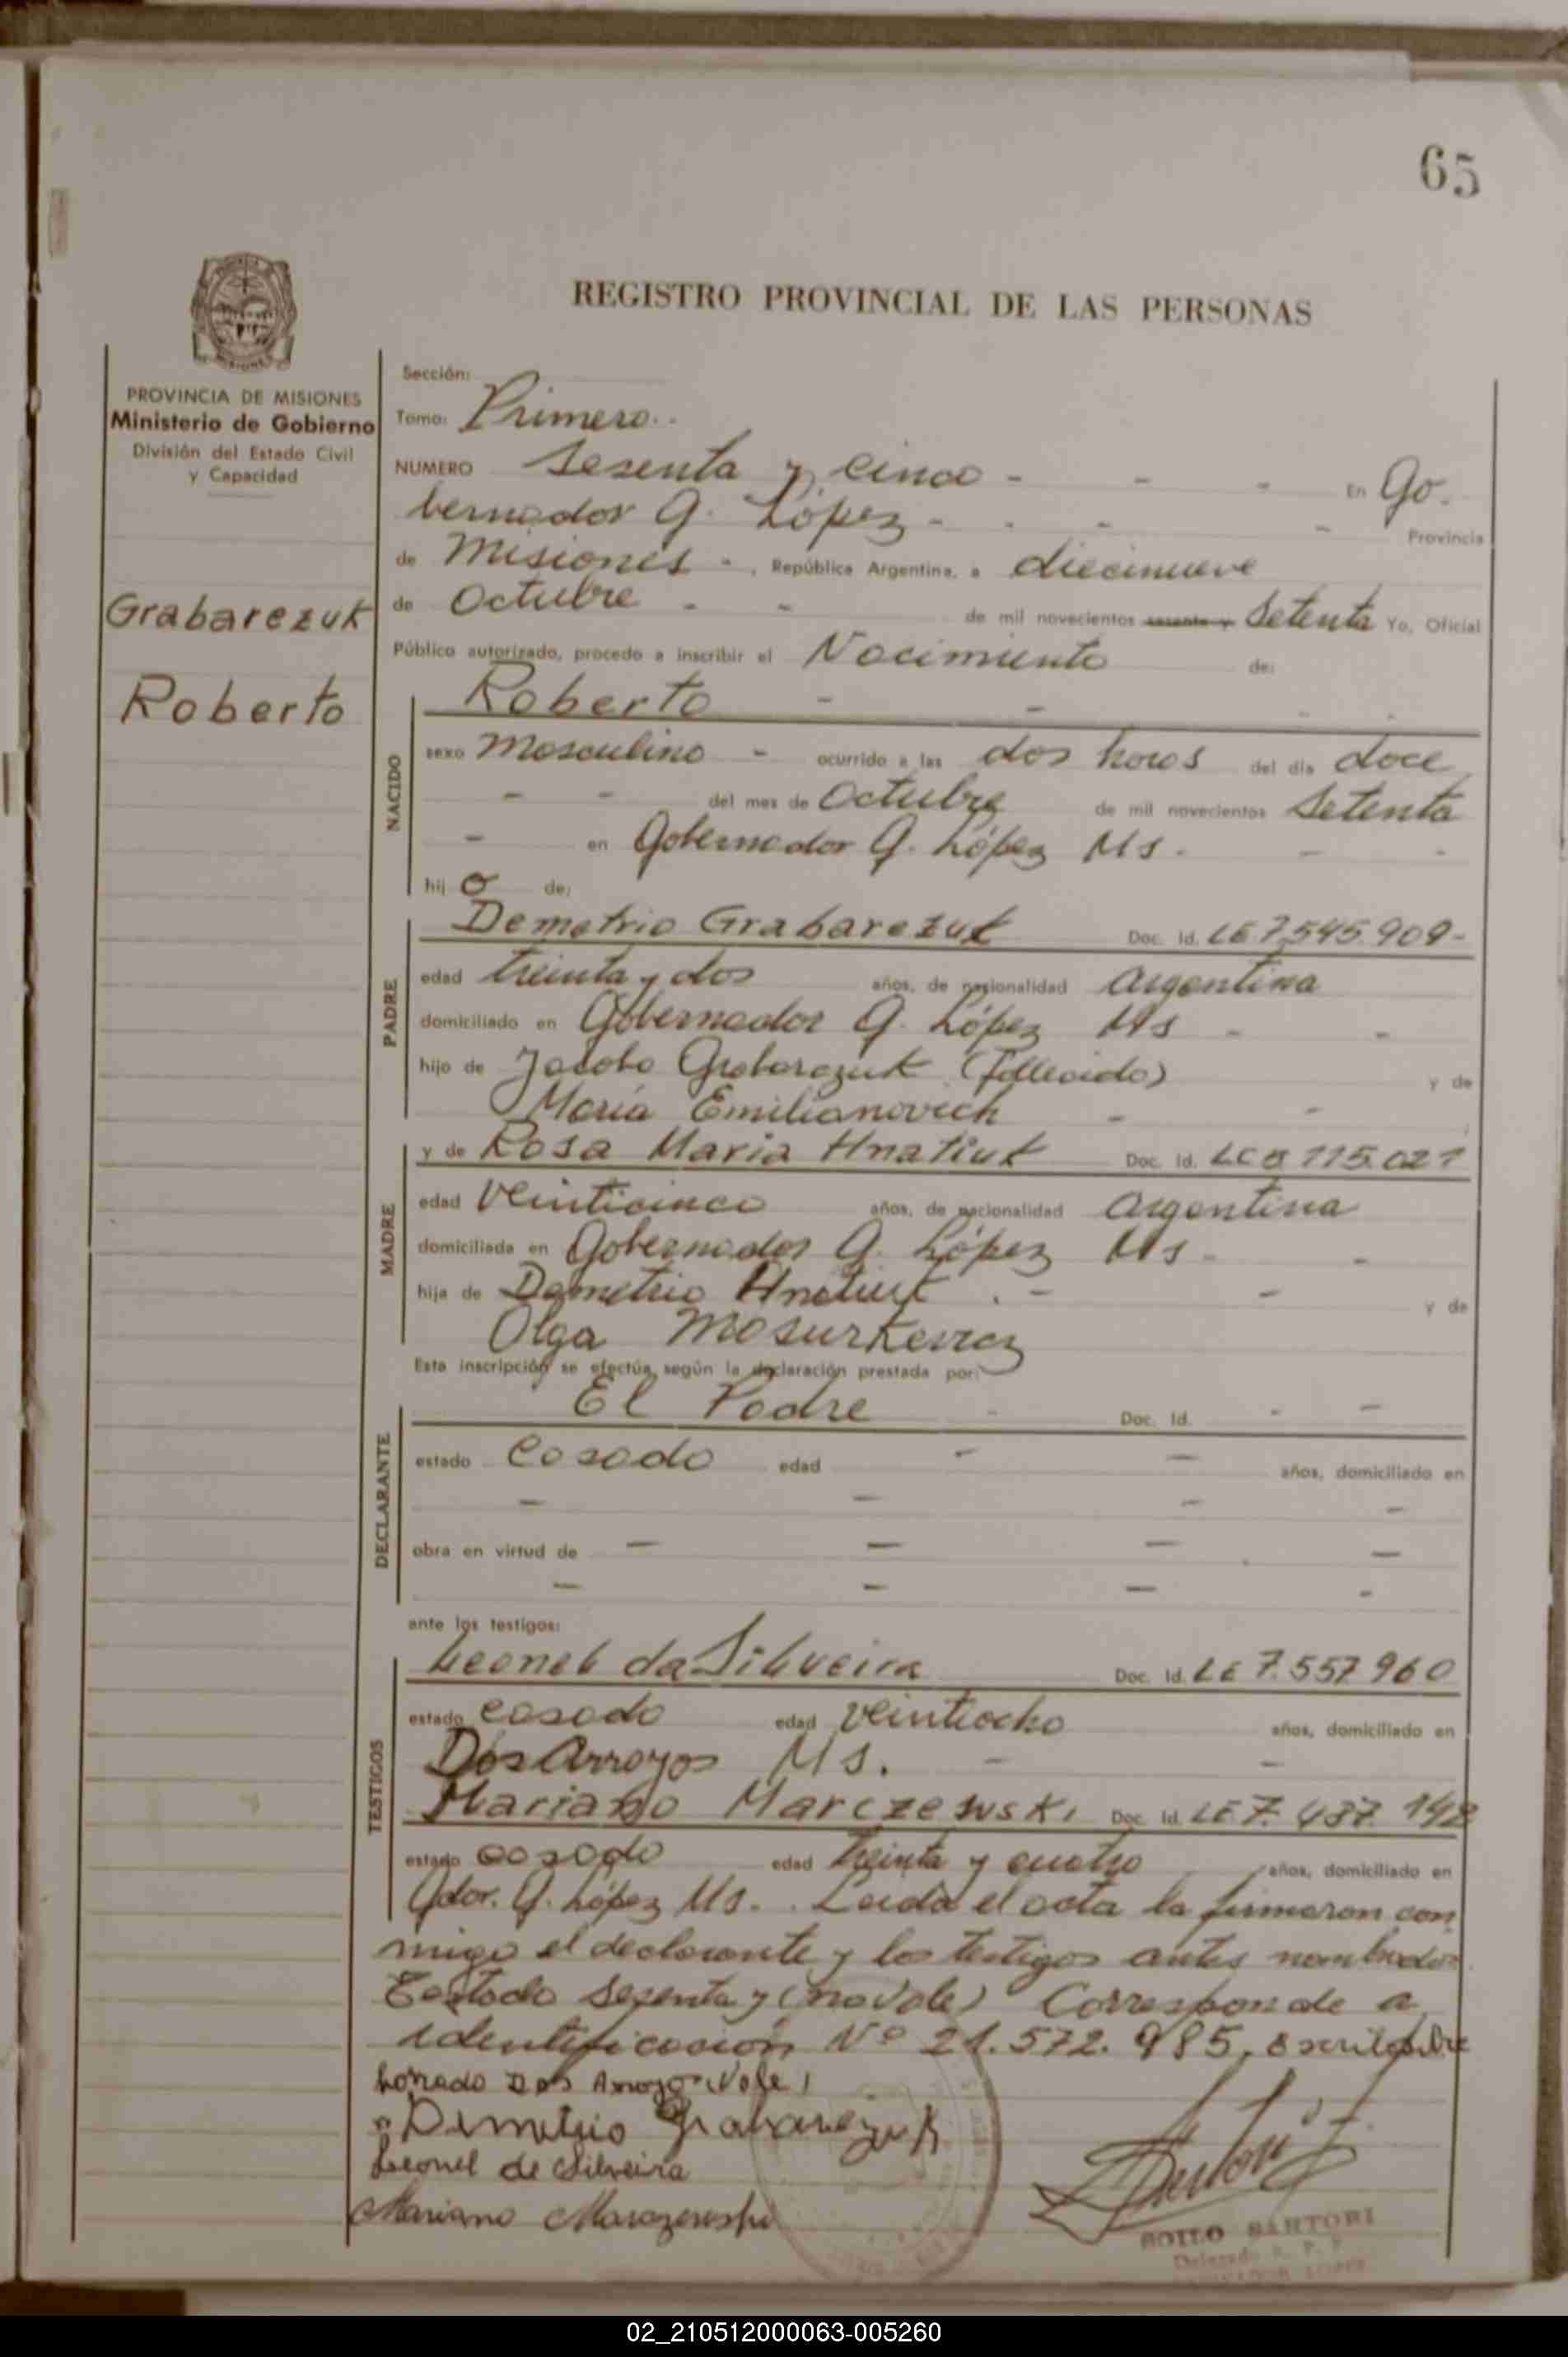 65
REGISTRO PROVINCIAL DE LAS PERSONAS
PROVINCIA DE MISIONES
Ministerio de Gobierno
División del Estado Civil
y Capacidad
Grabarezuk
Roberto
Sección:
Tomo: Primero..
NUMERO Sesenta y cinco - - - En Go.
bernador G. López - - - - Provincia
de Misiones - , República Argentina, a diecinueve
de Octubre - - de mil novecientos sesenta y Setenta Yo, Oficial
Público autorizado, procedo a inscribir el Nacimiento de:
Roberto - -
NACIDO
sexo Masculino - ocurrido a las dos horas del día doce
- - del mes de Octubre de mil novecientos Setenta
- en Gobernador G. López Ms. - -
hij o de:
PADRE
Demetrio Grabarezuk Doc. Id. LE.7.545.909-
edad treinta y dos años, de nacionalidad Argentina
domiciliado en Gobernador G. López Ms - -
hijo de Jacobo Grabarezuk (Fallecido) y de
María Emilianovech - -
MADRE
y de Rosa Maria Hnatiuk Doc. Id. LC 115.021
edad Veinticinco años, de nacionalidad Argentina
domiciliada en Gobernador G. López Ms - -
hija de Demetrio Hnatiuk . - - y de
Olga
Esta inscripción se efectúa según la declaración prestada por:
DECLARANTE
El Padre - Doc. Id. - -
estado Casado edad - - años, domiciliado en
- - - -
obra en virtud de - - - -
- - - -
ante los testigos:
TESTIGOS
Leonel da Silveira Doc. Id. LE 7.557.960
estado casado edad Veintiocho años, domiciliado en
Dos Arroyos Ms. - -
Mariano Marczewski Doc. Id. LE 7. 437. 148
estado casado edad treinta y cuatro años, domiciliado en
Gdor. G. López Ms. . Leida el acta la firmaron con
migo el declarante y los testigos antes nombrados
Testado sesenta y (no Vale) Corresponde a
identificación Nº 21.572.985, escrito sobre
borrado Dos Arroyos (Vale)
Demetrio Grabarezuk
Leonel de Silveira
Mariano Marczewski
SARTORI
02_210512000063-005260